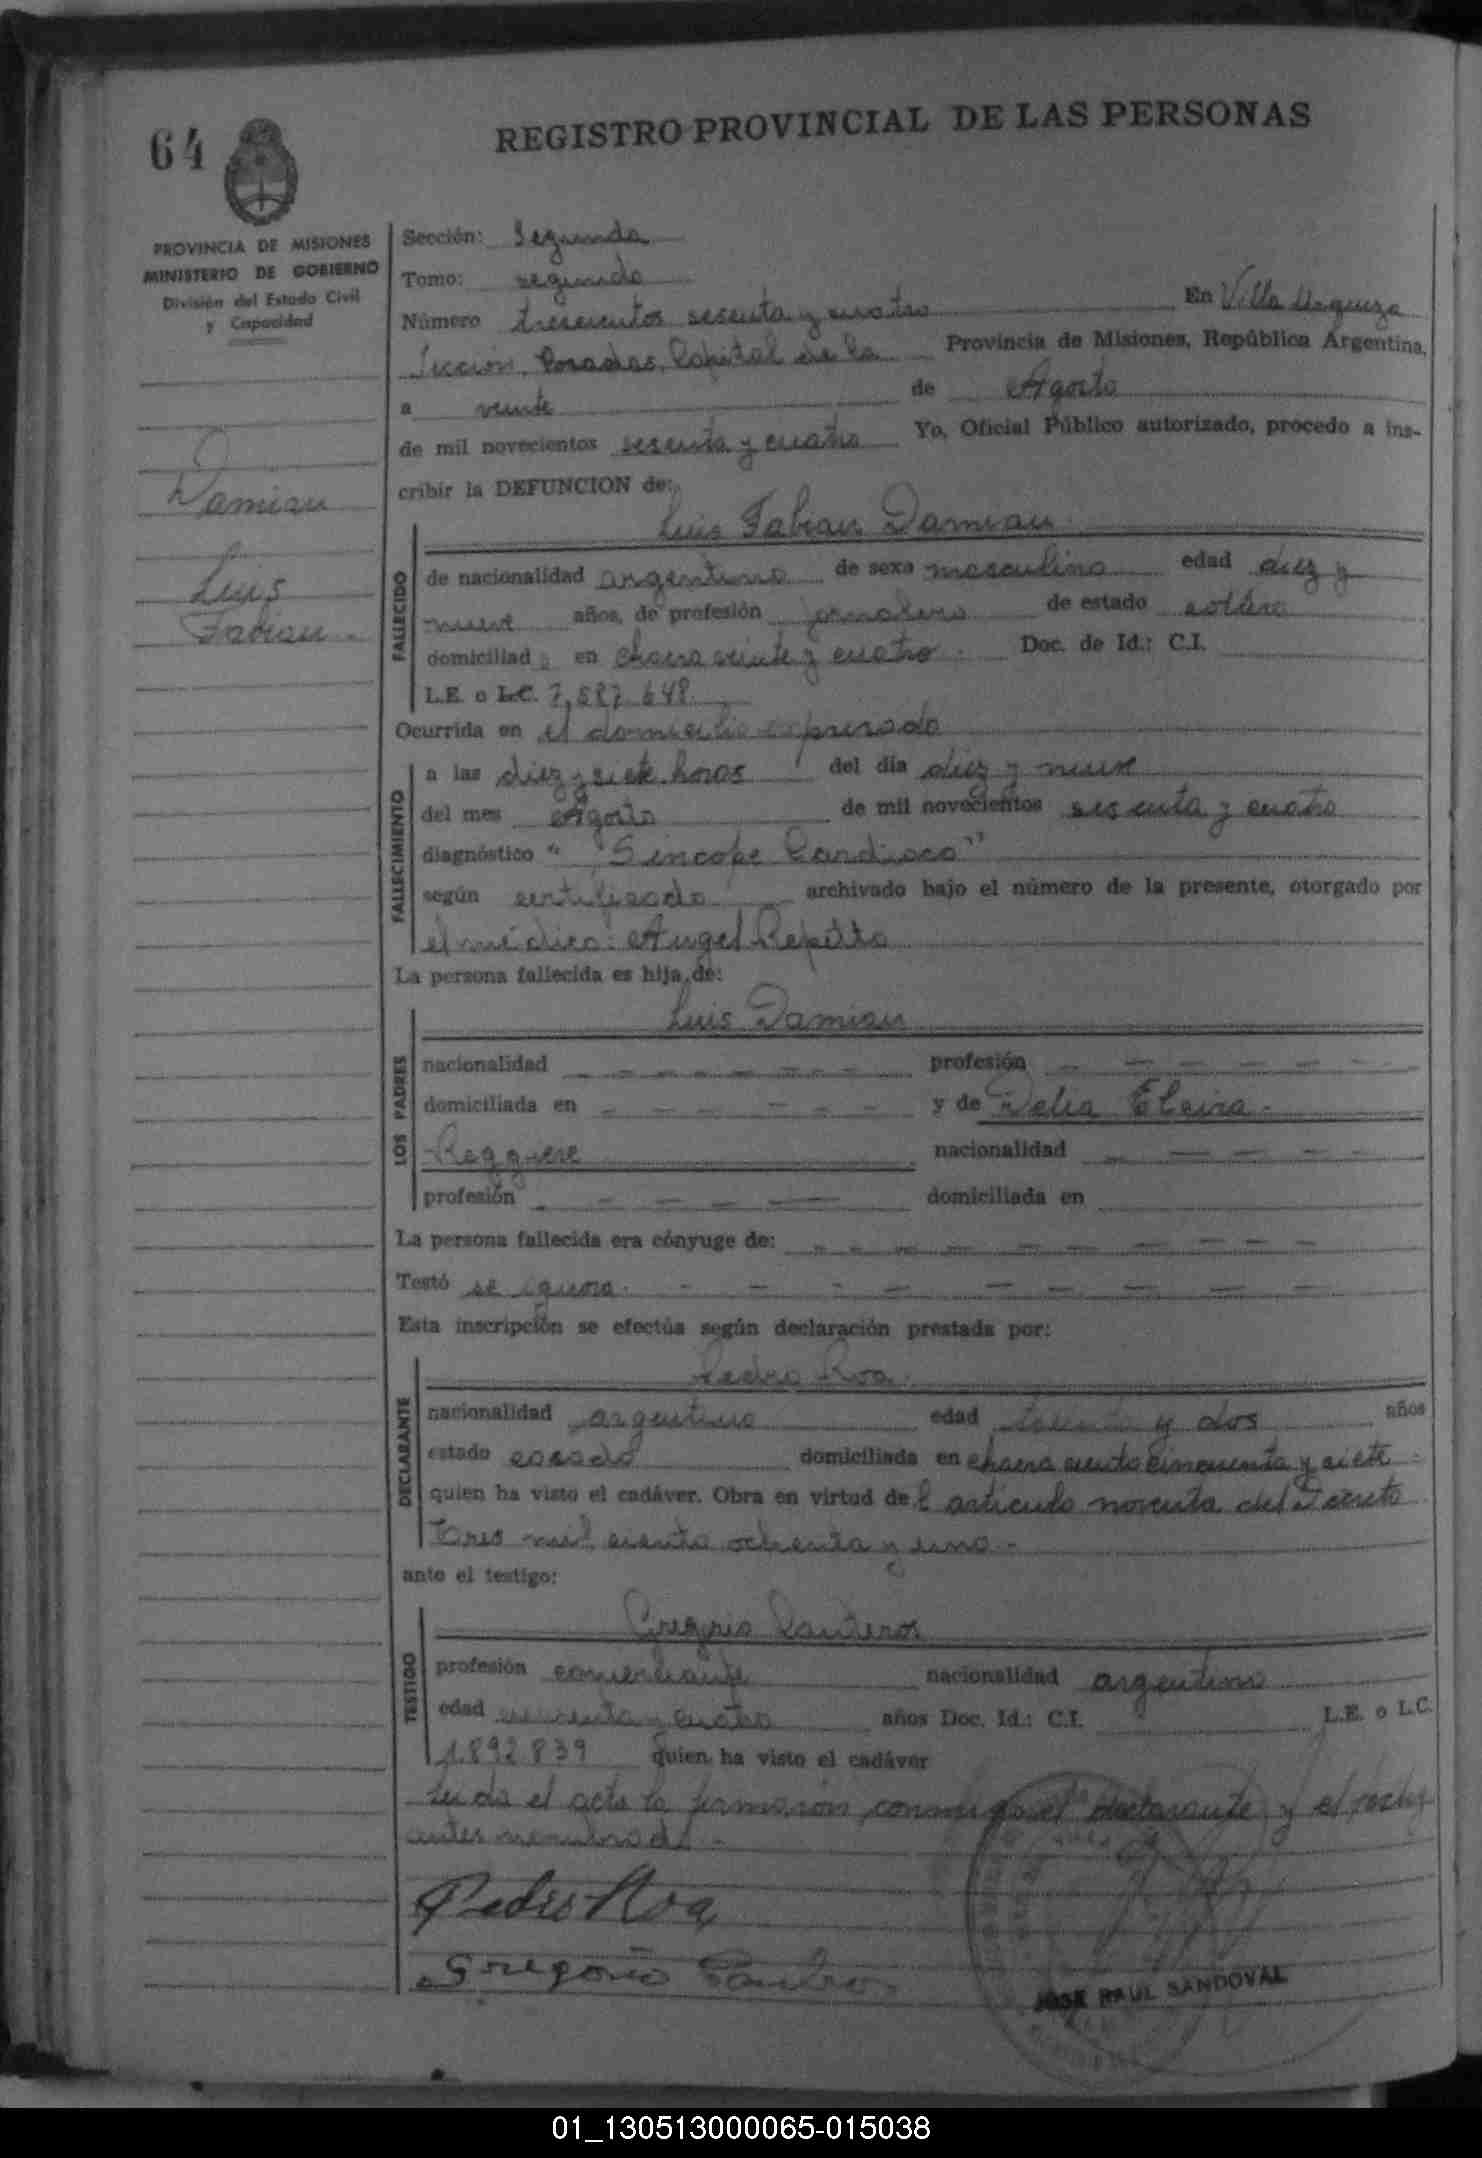 64
REGISTRO PROVINCIAL DE LAS PERSONAS
PROVINCIA DE MISIONES
MINISTERIO DE GOBIERNO
División del Estado Civil
y Capacidad
Damian
Luis
Fabian.
Sección: Segunda
Tomo: segundo
Número trescientos sesenta y cuatro En Villa Urquiza
Posadas, Capital de la Provincia de Misiones, República Argentina,
a veinte de Agosto
de mil novecientos sesenta y cuatro Yo, Oficial Público autorizado, procedo a ins-
cribir la DEFUNCION de:
Luis Fabian Damian
FALLECIDO
de nacionalidad argentino de sexo masculino edad diez y
nueve años, de profesión jornalero de estado soltero
domiciliad en chacra veinte y cuatro. Doc. de Id.: C.I.
L.E. o L.C. 7,587.648.
Ocurrida en el domicilio expresado
FALLECIMIENTO
a las diez y siete horas del día diez y nueve
del mes Agosto de mil novecientos sesenta y cuatro
diagnóstico " "Sincope Cardiaco"
según certificado archivado bajo el número de la presente, otorgado por
el médico: Angel Repetto
La persona fallecida es hija de:
Luis Damian
LOS PADRES
nacionalidad profesión
domiciliada en y de Delia Elvira
nacionalidad
profesión domiciliada en
La persona fallecida era cónyuge de:
Testó se ignora.
Esta inscripción se efectúa según declaración prestada por:
Pedro Roa.
DECLARANTE
nacionalidad argentino edad y dos años
estado casado domiciliada en chacra ciento cincuenta y siete
quien ha visto el cadáver. Obra en virtud del articulo noventa del Decreto
tres mil ciento ochenta y uno.-
ante el testigo:
Gregorio
TESTIGO
profesión comerciante nacionalidad argentino
edad y cuatro años Doc. Id.: C.I. L.E. o L.C.
1.892.839 quien ha visto el cadáver
Leida el acta la firmaron conmigo el declarante y el testigo
antes
Pedro Roa
Gregorio
JOSE RAUL SANDOVAL
01_130513000065-015038